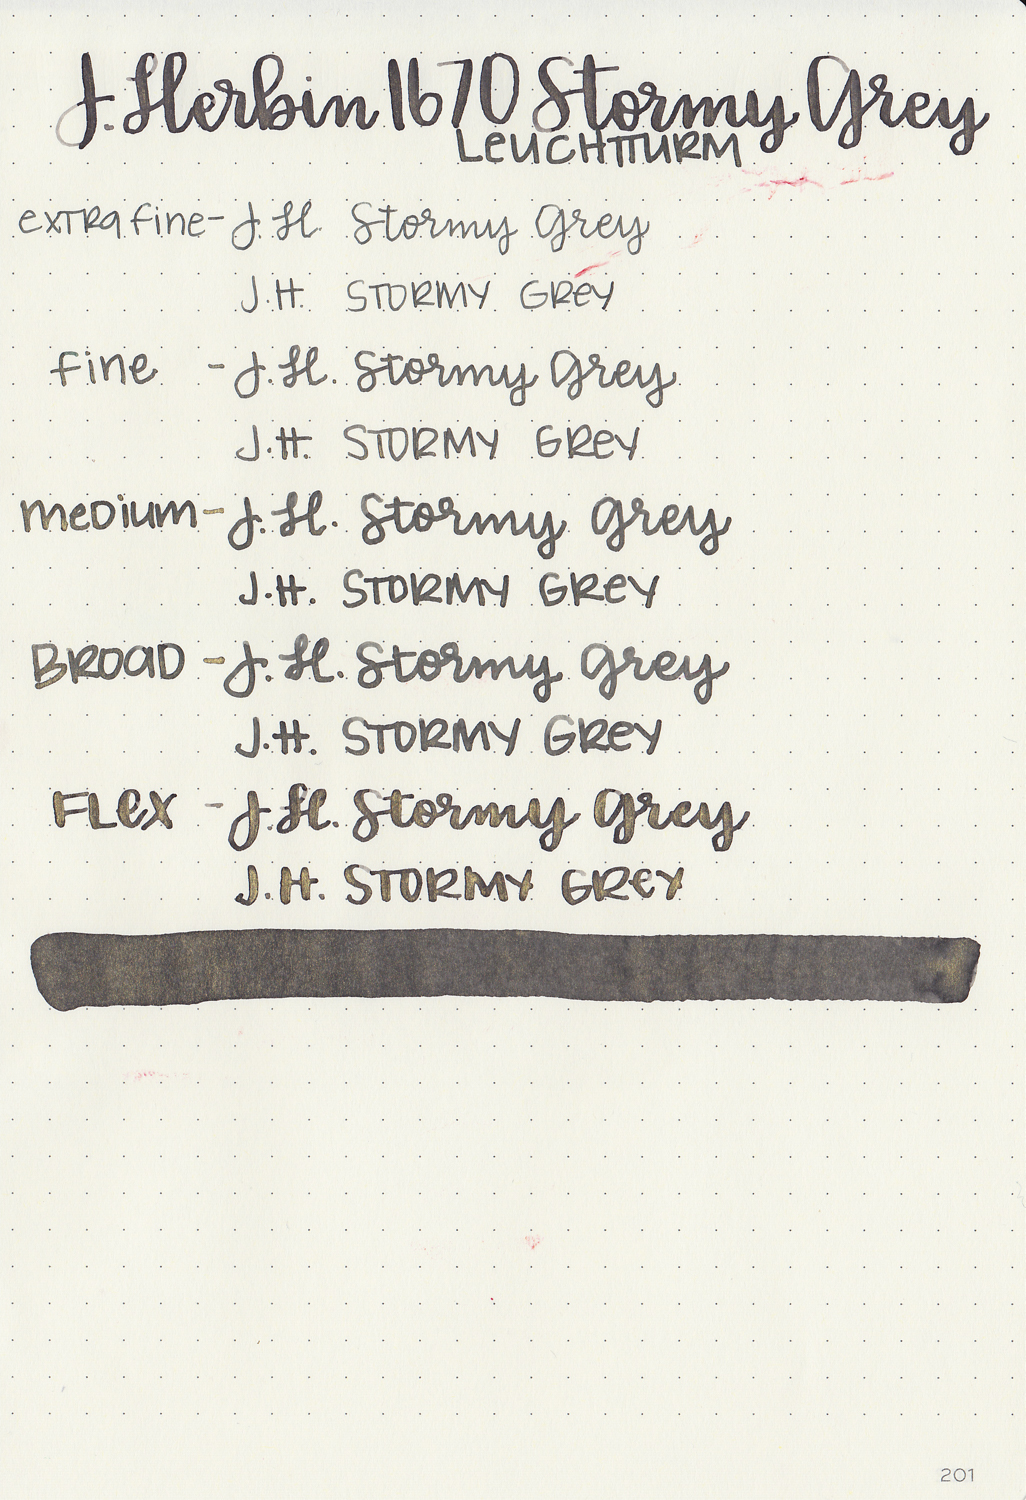 J. Herbin 1670 Stormy Grey
LEUCHTTURM
extra fine - J.H. Stormy Grey
J.H. STORMY GREY
fine - J.H. Stormy Grey
J.H. STORMY GREY
medium - J.H. Stormy Grey
J.H. STORMY GREY
BROAD - J.H. Stormy Grey
J.H. STORMY GREY
FLEX - J.H. Stormy Grey
J.H. STORMY GREY
201